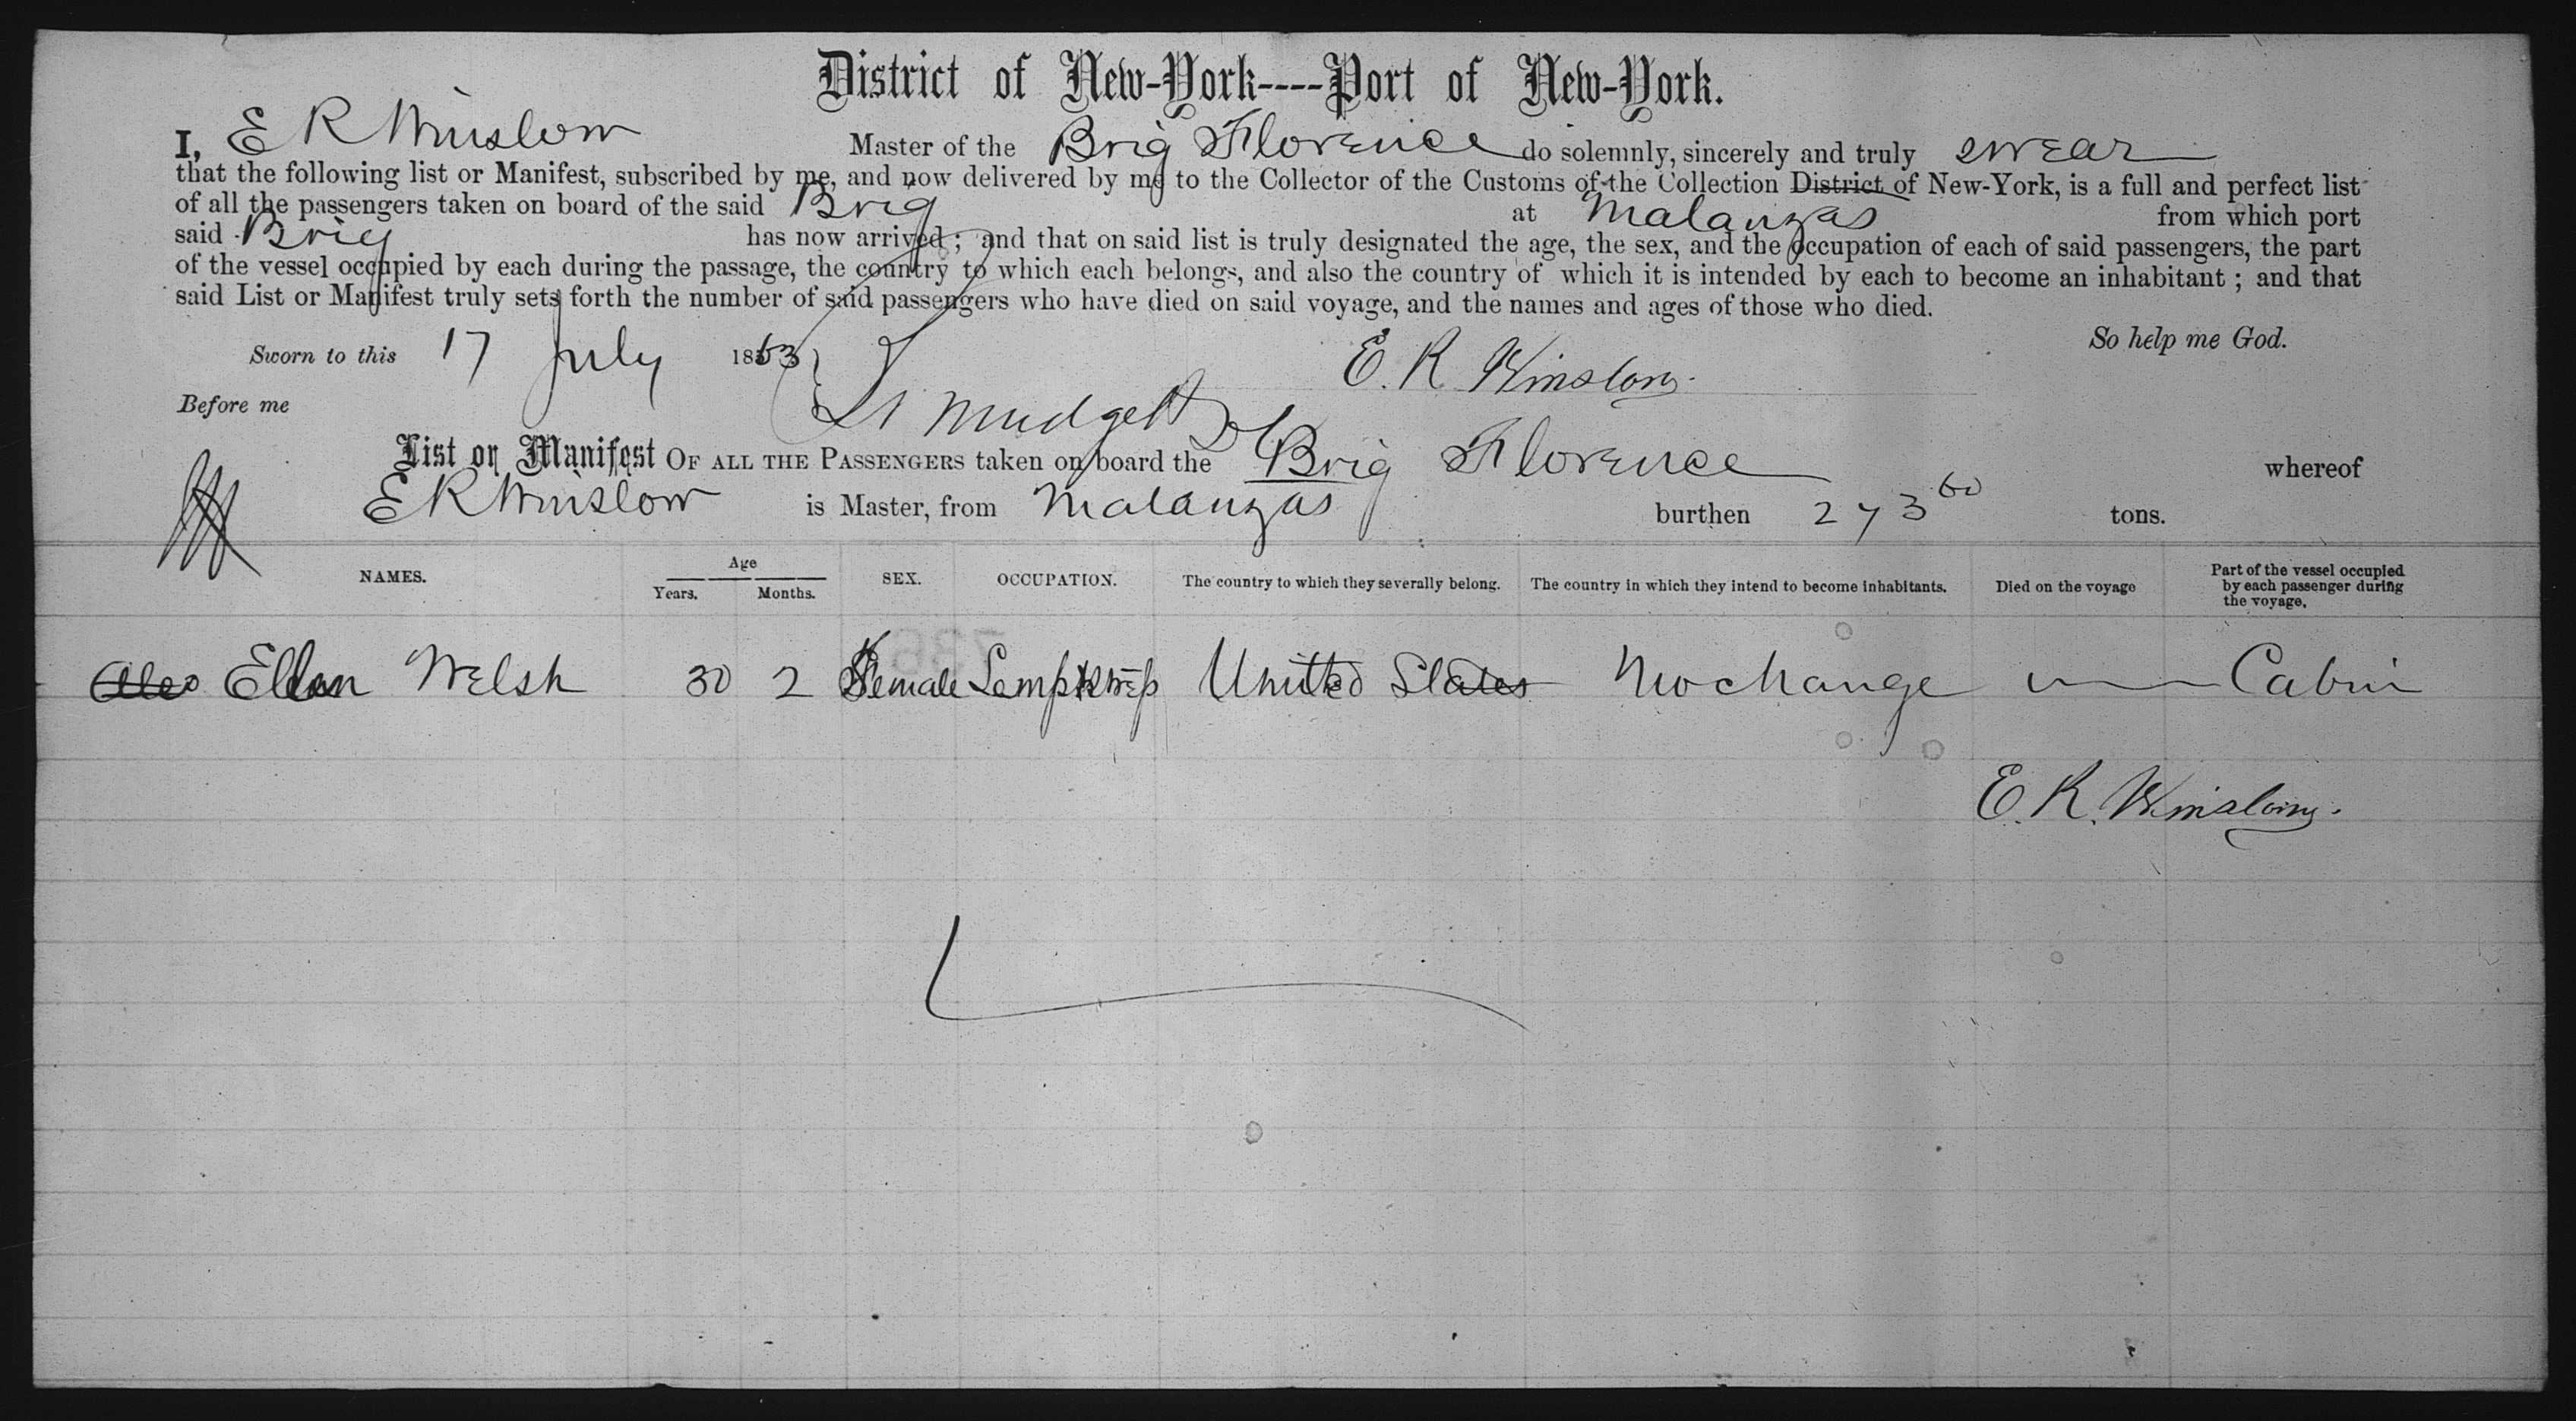 District of New-York----Port of New-York.
I, E R Winslow Master of the Brig Florence do solemnly, sincerely and truly swear
that the following list or Manifest, subscribed by me, and now delivered by me to the Collector of the Customs of the Collection District of New-York, is a full and perfect list
of all the passengers taken on board of the said Brig at Matanzas from which port
said Brig has now arrived; and that on said list is truly designated the age, the sex, and the occupation of each of said passengers, the part
of the vessel occupied by each during the passage, the country to which each belongs, and also the country of which it is intended by each to become an inhabitant; and that
said List or Manifest truly sets forth the number of said passengers who have died on said voyage, and the names and ages of those who died.
So help me God.
Sworn to this 17 July 1863 E. R. Winslow
Before me Mudgett
List or Manifest OF ALL THE PASSENGERS taken on board the Brig Florence whereof
E R Winslow is Master, from Matanzas burthen 273 60 tons.
NAMES. Age Years. Months. SEX. OCCUPATION. The country to which they severally belong. The country in which they intend to become inhabitants. Died on the voyage Part of the vessel occupied by each passenger during the voyage.
Ellen Welsh 30 2 Female United States No change Cabin
E. R. Winslow.